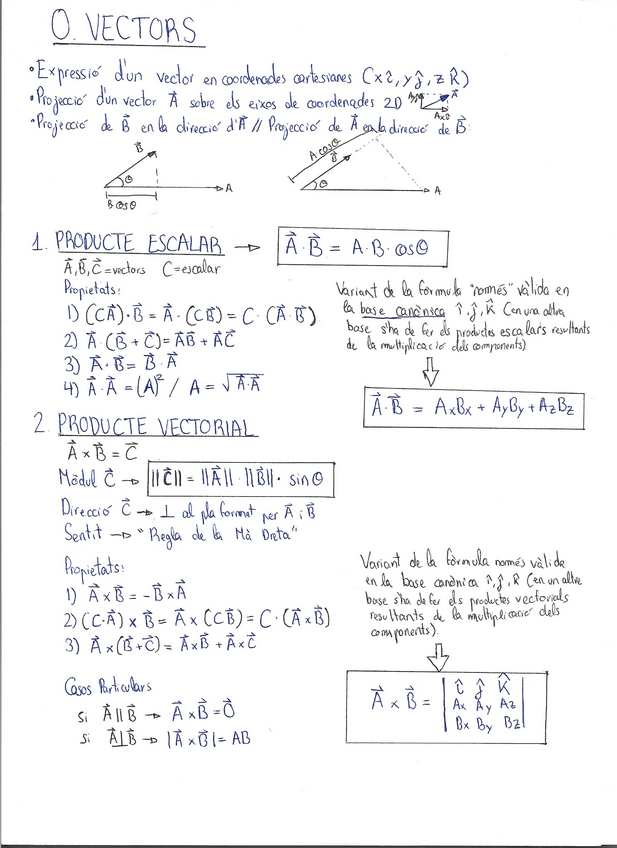 0. VECTORS
• Expressió d'un vector en coordenades cartesianes (x î, y ĵ, z k̂)
• Projecció d'un vector A⃗ sobre els eixos de coordenades 2D
• Projecció de B⃗ en la direcció d'A⃗ // Projecció de A⃗ en la direcció de B⃗:
B⃗
θ
A
B cosθ
A cosθ
B⃗
θ
A
1. PRODUCTE ESCALAR → A⃗·B⃗ = A·B·cosθ
A⃗, B⃗, C⃗ = vectors C = escalar
Propietats:
1) (CA⃗)·B⃗ = A⃗·(CB⃗) = C·(A⃗·B⃗)
2) A⃗·(B⃗ + C⃗) = A⃗B⃗ + A⃗C⃗
3) A⃗·B⃗ = B⃗·A⃗
4) A⃗·A⃗ = (A)² / A = √A⃗·A⃗
Variant de la fórmula "només" vàlida en
la base canònica î, ĵ, k̂ (en una altra
base s'ha de fer els productes escalars resultants
de la multiplicació dels components).
A⃗·B⃗ = AxBx + AyBy + AzBz
2. PRODUCTE VECTORIAL
A⃗ × B⃗ = C⃗
Mòdul C⃗ → ||C⃗|| = ||A⃗||·||B⃗||· sinθ
Direcció C⃗ → ⊥ al pla format per A⃗ i B⃗
Sentit → "Regla de la Mà Dreta"
Propietats:
1) A⃗ × B⃗ = -B⃗ × A⃗
2) (C·A⃗) × B⃗ = A⃗ × (CB⃗) = C·(A⃗ × B⃗)
3) A⃗ × (B⃗ + C⃗) = A⃗×B⃗ + A⃗×C⃗
Variant de la fórmula només vàlida
en la base canònica î, ĵ, k̂ (en un altre
base s'ha de fer els productes vectorials
resultants de la multiplicació dels
components).
Casos Particulars
Si A⃗ || B⃗ → A⃗ × B⃗ = 0⃗
si A⃗ ⊥ B⃗ → |A⃗ × B⃗| = AB
A⃗ × B⃗ = | î ĵ k̂
Ax Ay Az
Bx By Bz |